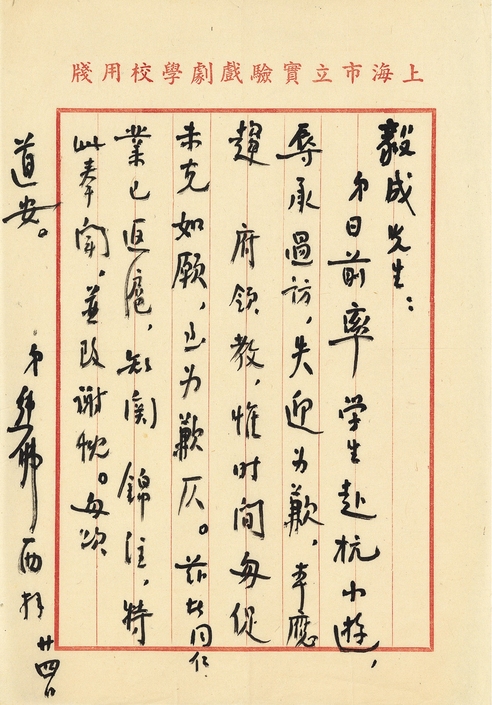 上海市立實驗戲劇學校用牋
毅成先生：
弟日前率学生赴杭小游，
辱承過訪，失迎为歉，本應
趨 府领教，惟时间匆促
未克如願，为歉仄。兹於同仁
業已返滬，知関錦注，特
此奉闻，並致谢忱。匆颂
道安。
弟 佛西拜 廿四日